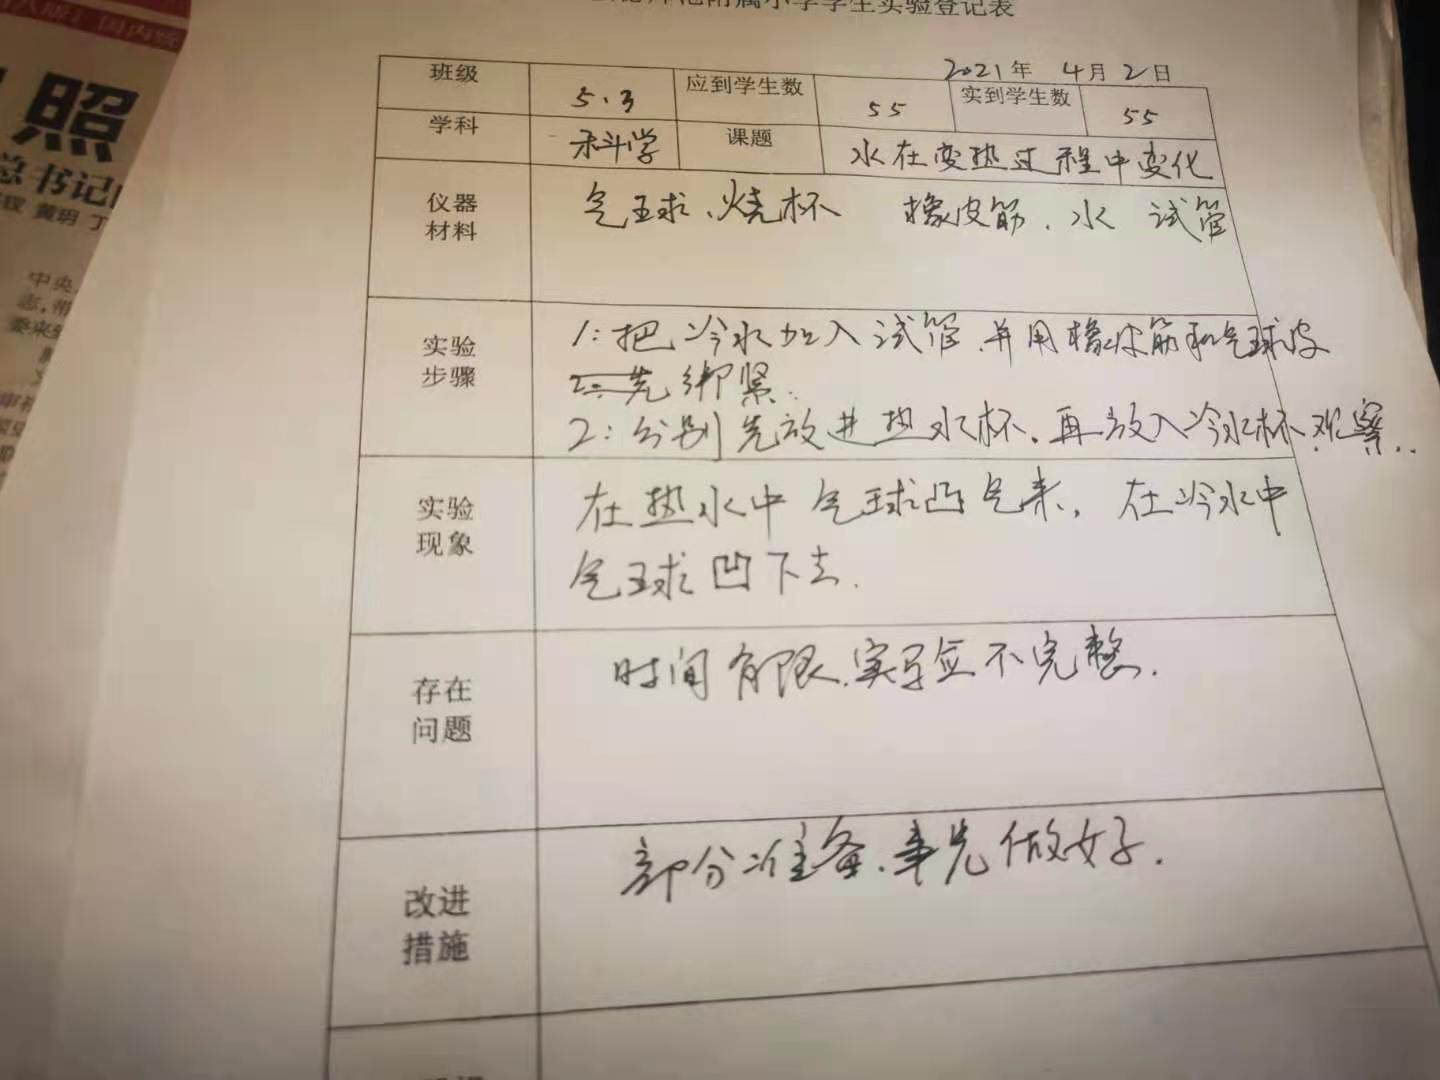 附属小学学生实验登记表
2021年 4月2日
班级 5.3 应到学生数 55 实到学生数 55
学科 科学 课题 水在变热过程中变化
仪器材料 气球、烧杯 橡皮筋、水 试管
实验步骤 1:把冷水加入试管,并用橡皮筋和气球皮
2:先绑紧.
2:分别先放进热水杯,再放入冷水杯观察..
实验现象 在热水中气球凸气来,在冷水中
气球凹下去.
存在问题 时间有限,实验不完整.
改进措施 部分准备、事先做好.
照
总书记
黄玥 丁
中央
志,带
委来到